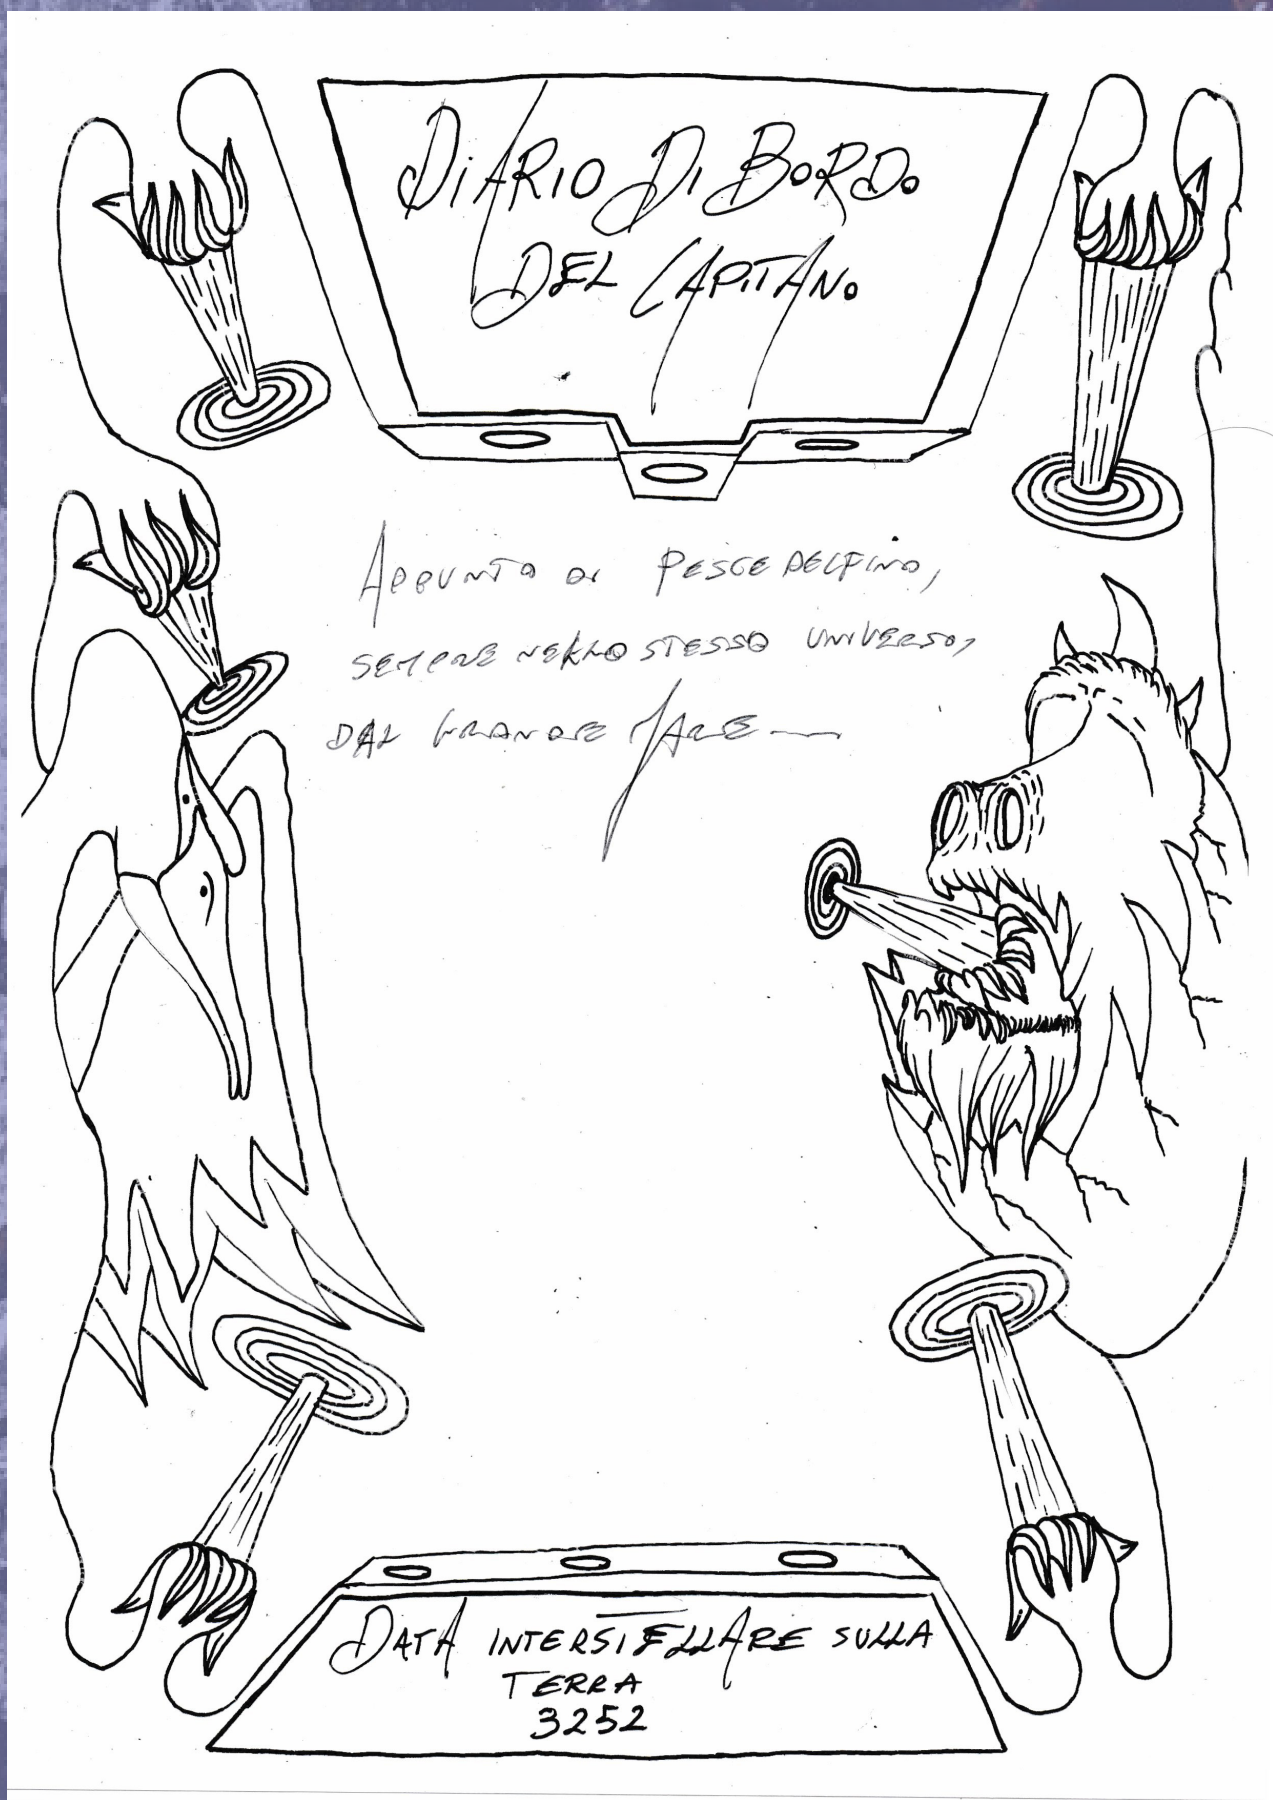 DiARIO Di BORDO
DEL CAPITANO
APPUNTO DI PESCE DELFINO,
SEMPRE NELLO STESSO UNIVERSO,
DAL GRANDE MARE
DATA INTERSTELLARE SULLA
TERRA
3252